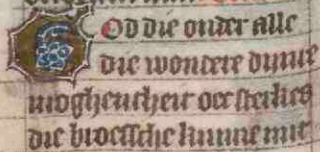 God die onder alle
die wondere dijnre
moghentheit oec sterkes
die broessche kunne mit